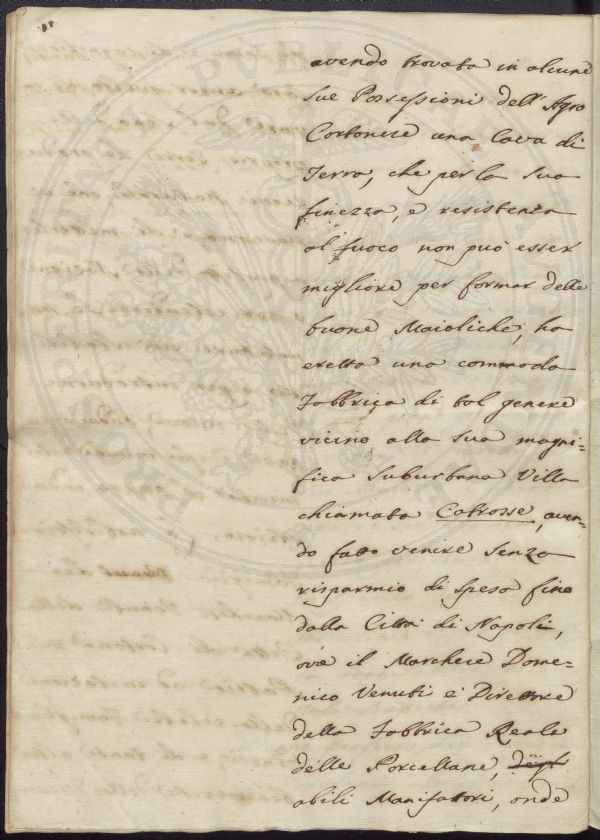 avendo trovata in alcune
sue Possessioni dell' Agro
Cortonese una Cava di
Terra, che per la sua
finezza, e resistenza
al fuoco non può esser
migliore per formar delle
buone Maioliche, ha
eretta una commoda
Fabbrica di tal genere
vicino alla sua magni=
fica suburbana Villa
chiamata Catrosse, aven=
do fatto venire senza
risparmio di spesa fino
dalla Città di Napoli,
ove il Marchese Dome=
nico Venuti è Direttore
della Fabbrica Reale
delle Porcellane,
abili Manifattori, onde